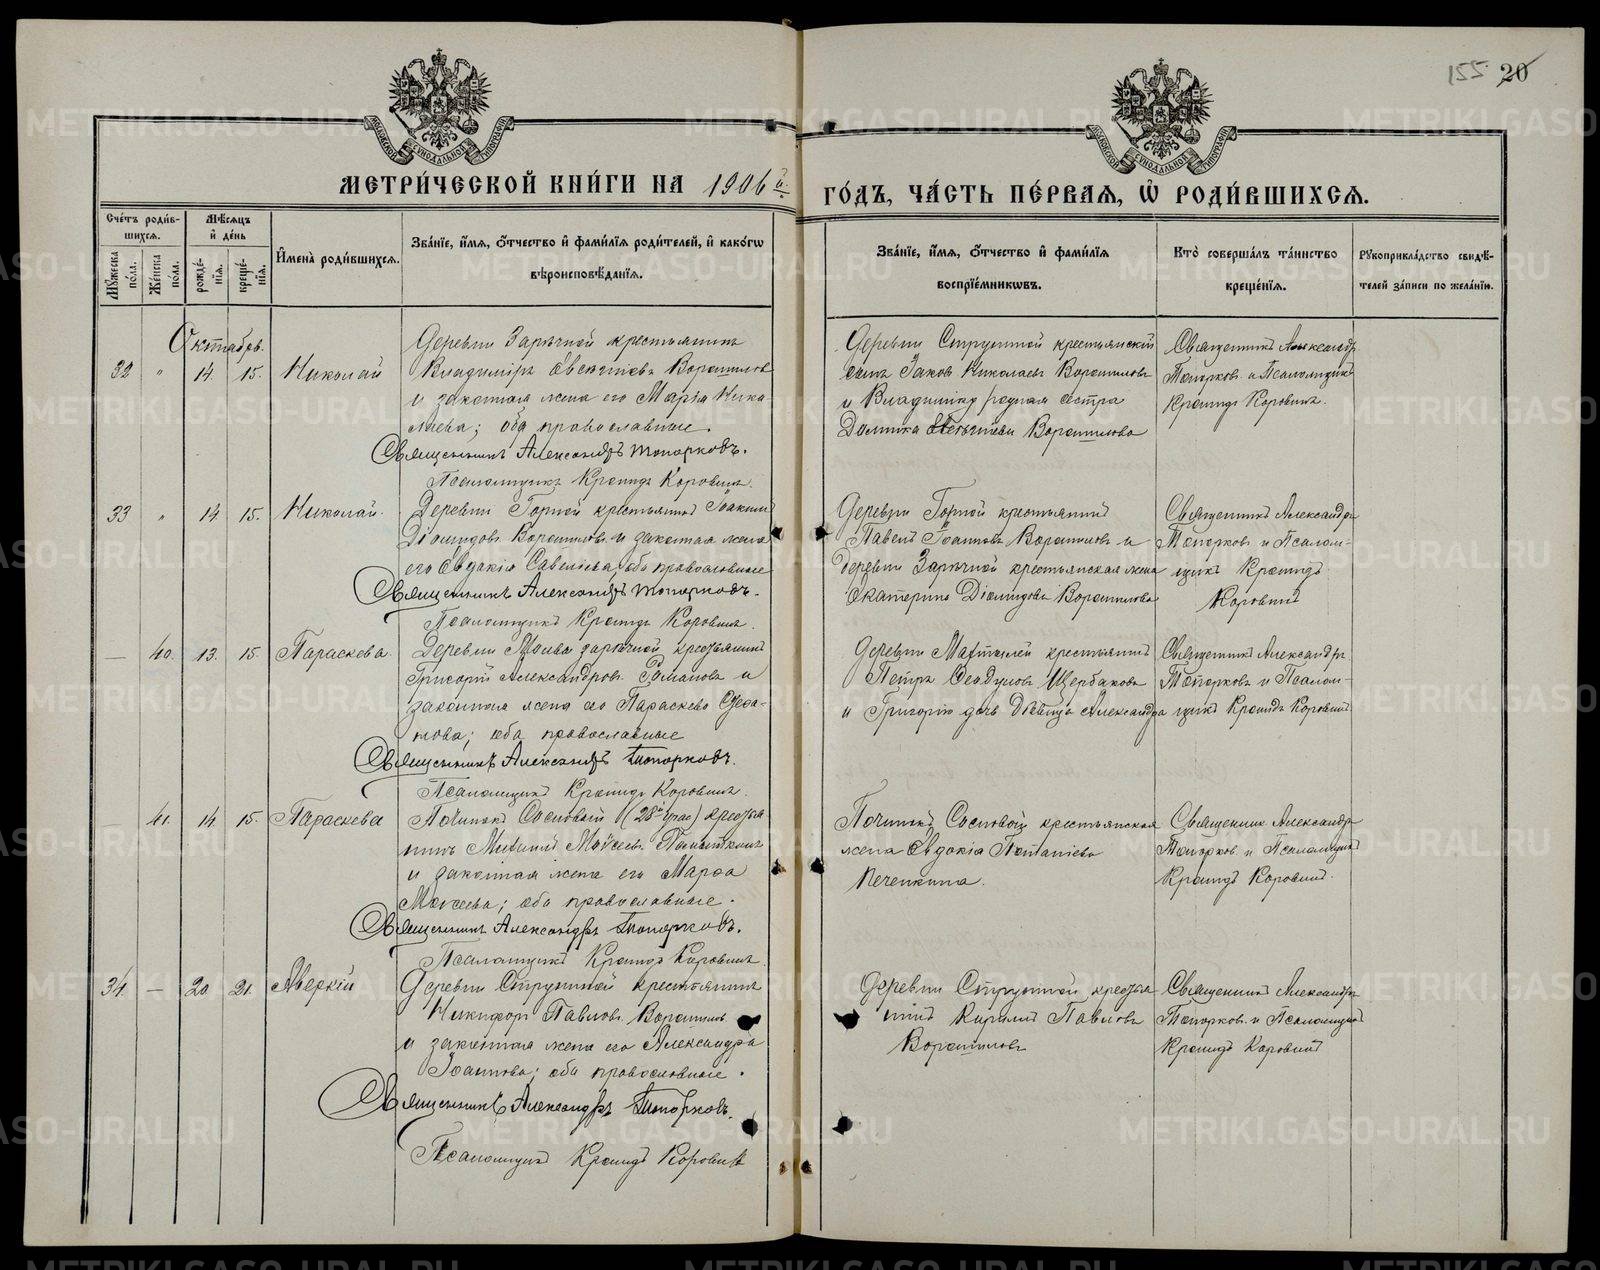 155 20
МОСКОВСКОЙ СѴНОДАЛЬНОЙ ТИПОГРАФІИ
МОСКОВСКОЙ СѴНОДАЛЬНОЙ ТИПОГРАФІИ
МЕТРИ́ЧЕСКОЙ КНИ́ГИ НА 1906 й.
ГО́ДЪ, ЧА́СТЬ ПЕ́РВАЯ, Ѡ҆ РОДИ́ВШИХСЯ.
Сче́тъ роди́в-
шихся.
Мѣ́сяцъ
и҆ де́нь
Мꙋ́жеска по́ла.
Же́нска по́ла.
рожде́-нїя.
креще́-нїя.
И҆мена̀ роди́вшихся.
Зва́нїе, и҆́мя, ѻ҆́тчество и҆ фами́лїя роди́телей, и҆ како́гѡ
вѣроисповѣ́данїя.
Зва́нїе, и҆́мя, ѻ҆́тчество и҆ фами́лїя
воспрїе́мникѡвъ.
Кто̀ соверша́лъ та́инство
креще́нїя.
Рꙋкоприкла́дство свидѣ́-
телей за́писи по жела́нїю.
Октябрь.
32 " 14. 15. Николай
Деревни Зарѣчной крестьянинъ
Владиміръ Евсигніевъ Ворошиловъ
и законная жена его Марія Нико-
лаева; оба православные.
Священникъ Александръ Топорковъ.
Псаломщикъ Кронидъ Коровинъ.
Деревни Струнной крестьянскій
сынъ Іаковъ Николаевъ Ворошиловъ
и Владиміру родная сестра
Домника Ворошилова
Священникъ Александръ
Топорковъ и Псаломщикъ
Кронидъ Коровинъ.
33 " 14. 15. Николай.
Деревни Горной крестьянинъ Іоакимъ
Діомидовъ Ворошиловъ и законная жена
его Евдокія Савеліева, оба православные
Священникъ Александръ Топорковъ.
Псаломщикъ Кронидъ Коровинъ.
Деревни Горной крестьянинъ
Павелъ Іоанновъ Ворошиловъ и
деревни Зарѣчной крестьянская жена
Екатерина Діомидова Ворошилова
Священникъ Александръ
Топорковъ и Псалом-
щикъ Кронидъ
Коровинъ
— 40. 13. 15. Параскева.
Деревни зарѣчной крестьянинъ
Григорій Александровъ Романовъ и
законная жена его Параскева Стефа-
нова; оба православные
Священникъ Александръ Топорковъ.
Псаломщикъ Кронидъ Коровинъ.
Деревни крестьянинъ
Петръ Щербаковъ
и Григорію дочь дѣвица Александра
Священникъ Александръ
Топорковъ и Псалом-
щикъ Кронидъ Коровинъ
— 41. 14. 15. Параскева
Починка Сосновой (28 ) крестья-
нинъ Моѵсеевъ
и законная жена его Марѳа
Моѵсеева; оба православные.
Священникъ Александръ Топорковъ.
Псаломщикъ Кронидъ Коровинъ.
Починка Сосновой крестьянская
жена Евдокія Потапіева
Печенкина.
Священникъ Александръ
Топорковъ и Псаломщикъ
Кронидъ Коровинъ.
34. — 20. 21. Аверкій
Деревни Струнной крестьянинъ
Никифоръ Павловъ Ворошиловъ
и законная жена его Александра
Іоаннова; оба православные.
Священникъ Александръ Топорковъ.
Псаломщикъ Кронидъ Коровинъ
Деревни Струнной крестья-
нинъ Кириллъ Павловъ
Ворошиловъ
Священникъ Александръ
Топорковъ и Псаломщикъ
Кронидъ Коровинъ
METRIKI.GASO-URAL.RU